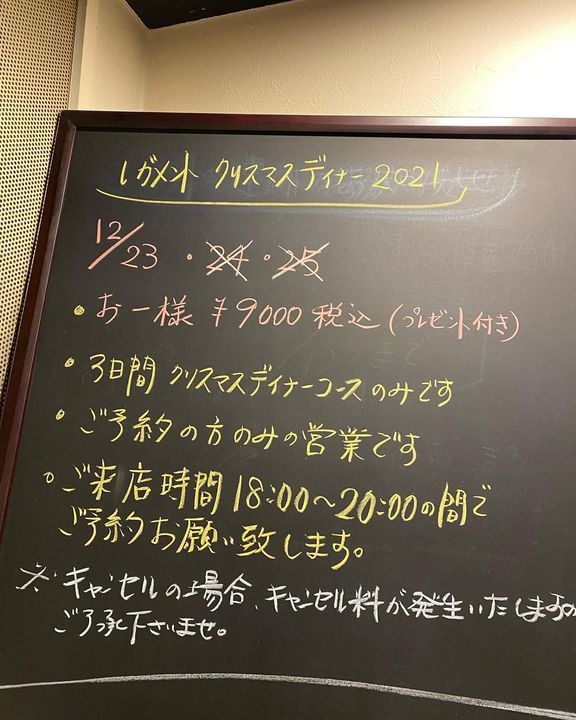 レガメント クリスマスディナー 2021
12/23 ・ 24 ・ 25
• お一様 ¥9000 税込 (プレゼント付き)
• 3日間 クリスマスディナーコースのみです
• ご予約の方のみの営業です
• ご来店時間 18:00～20:00の間で
ご予約お願い致します。
※ キャンセルの場合、キャンセル料が発生いたしますの
ご了承下さいませ。